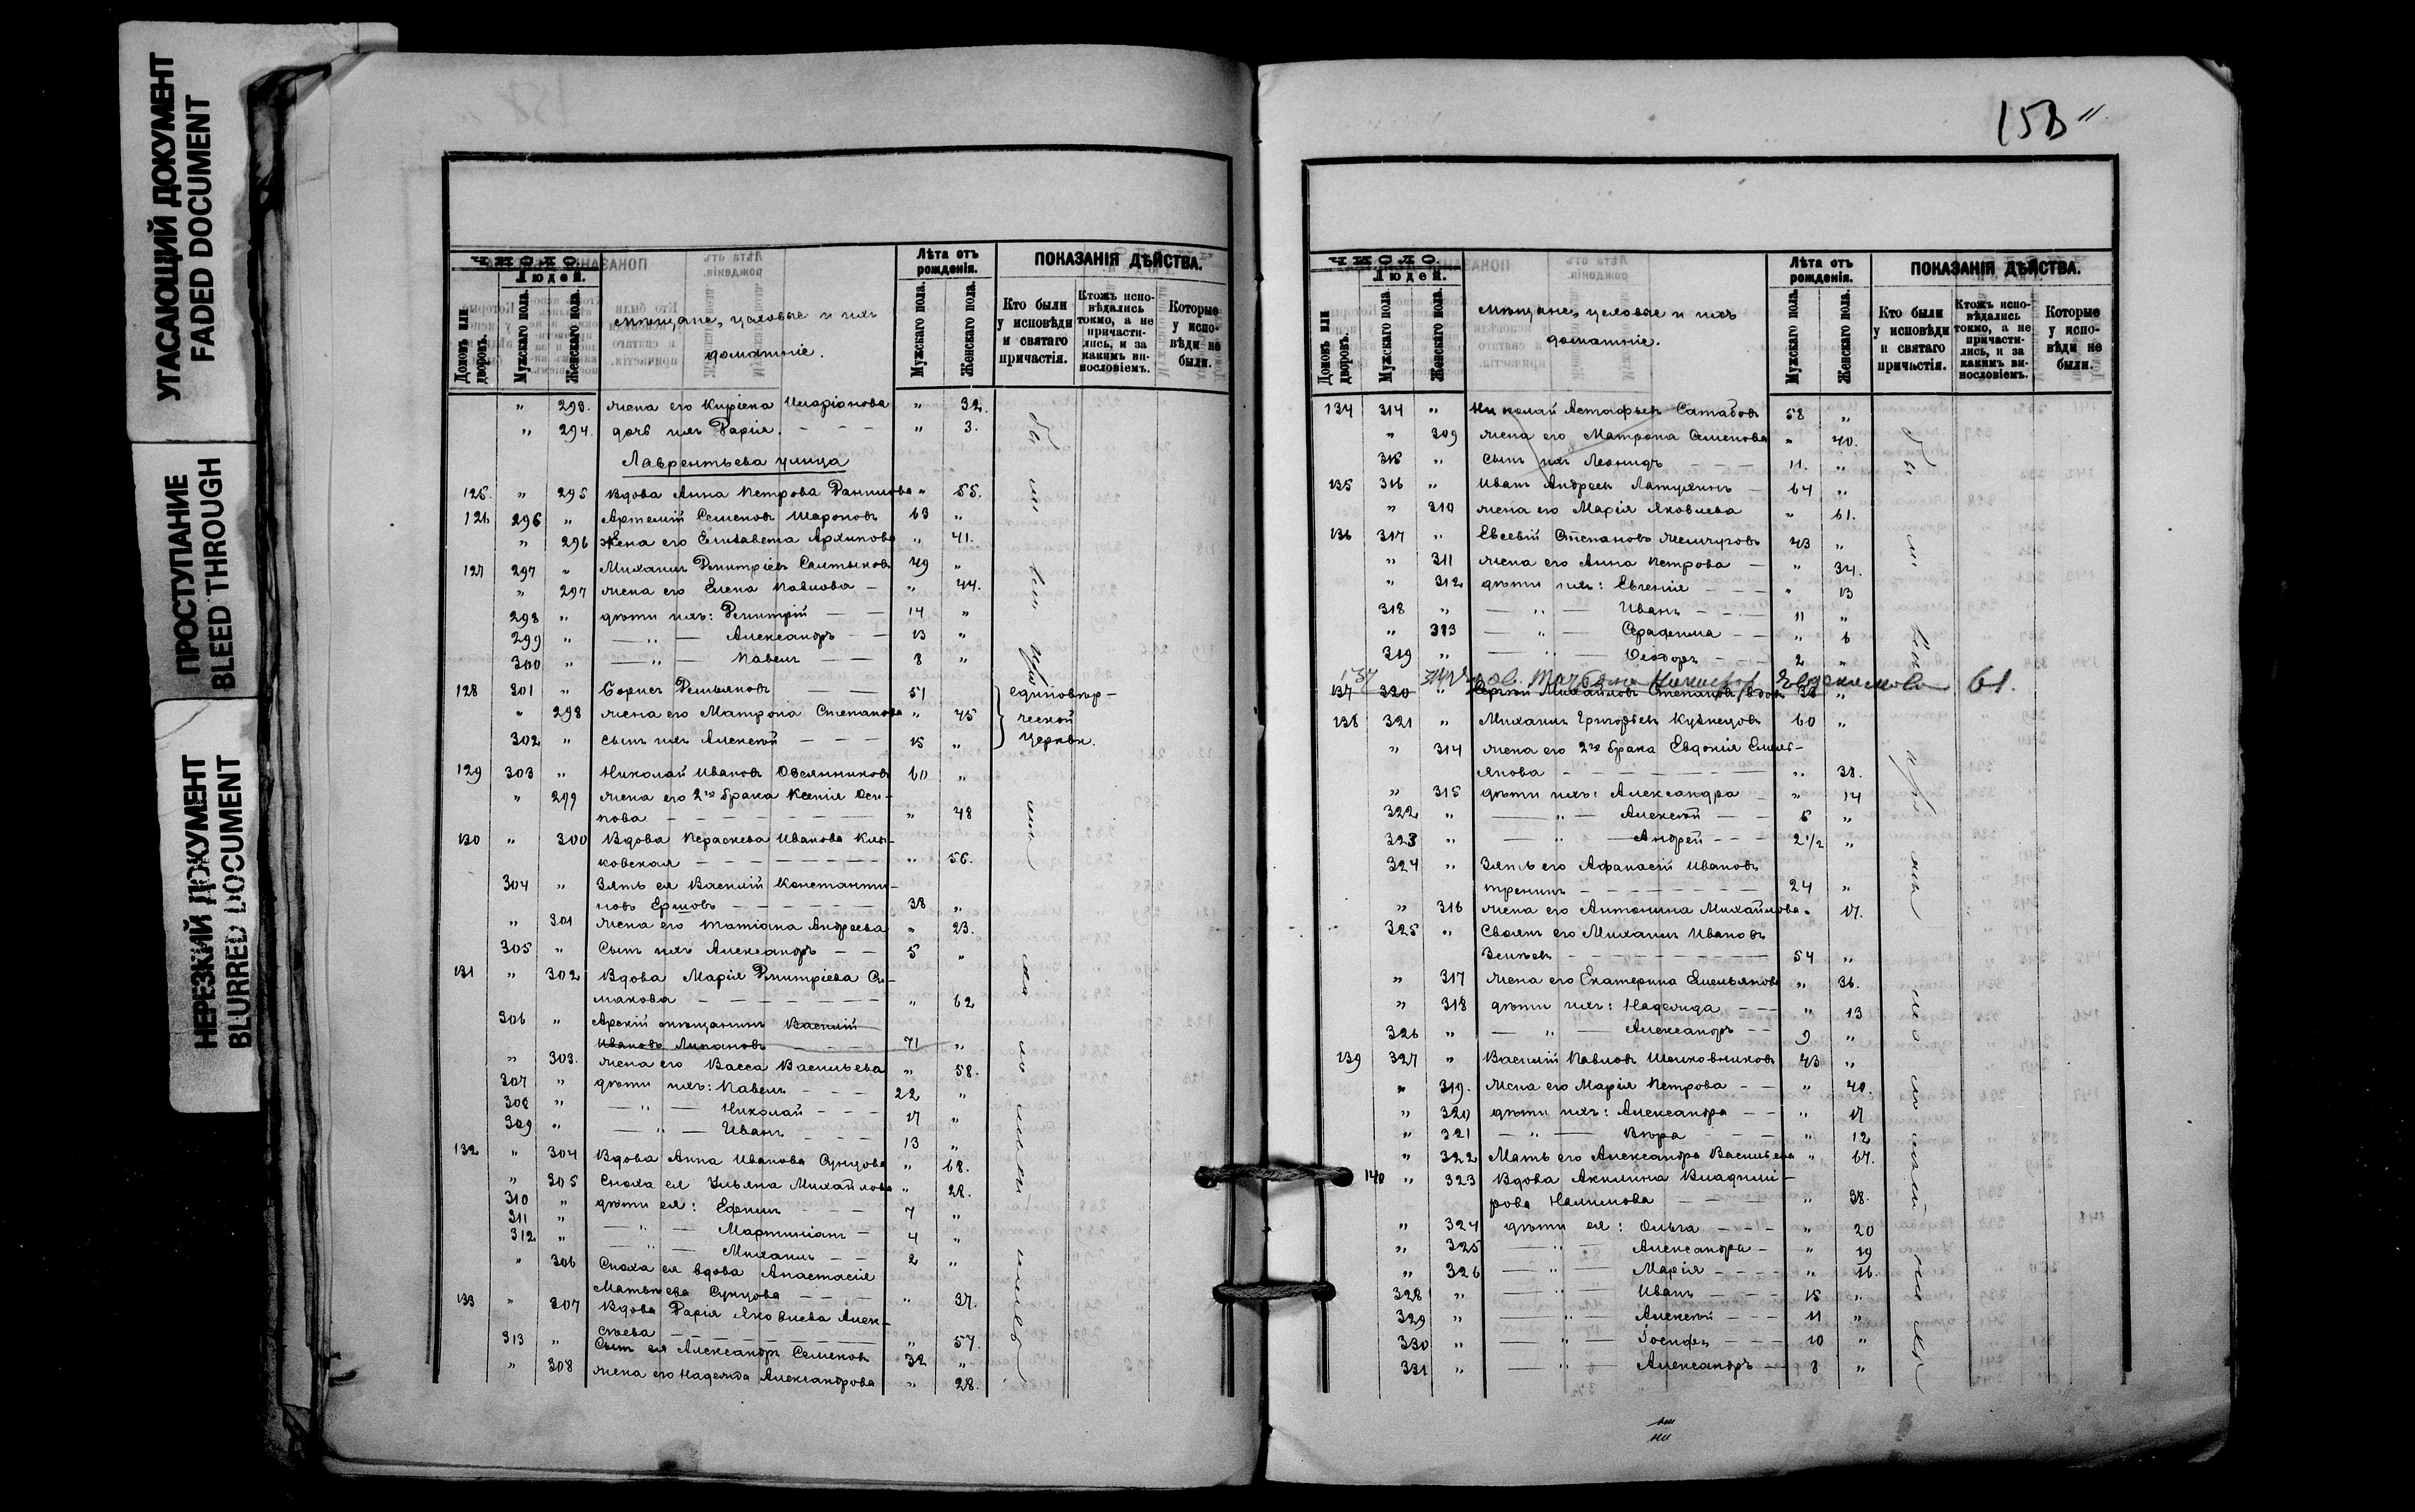 УГАСАЮЩИЙ ДОКУМЕНТ
FADED DOCUMENT
ПРОСТУПАНИЕ
BLEED THROUGH
НЕРЕЗКИЙ ДОКУМЕНТ
BLURRED DOCUMENT
ЧИСЛО.
Людей.
Домовъ или дворовъ.
Мужскаго пола.
Женскаго пола.
мѣщане, цеховые и ихъ
домашніе.
Лѣта отъ рожденія.
Мужскаго пола.
Женскаго пола.
ПОКАЗАНІЯ ДѢЙСТВА.
Кто были у исповѣди и святаго причастія.
Ктожъ исповѣдались токмо, а не причастились, и за какимъ винословіемъ.
Которые у исповѣди не были.
" 293. жена его Кирiена Иларіонова " 32.
" 294. дочь ихъ Дарія. - - - " 3.
Лаврентьева улица
125. " 295 Вдова Анна Петрова Данилова " 55.
126 296 " Артемій Семеновъ Шароновъ 63 "
" 296 жена его Елизавета Архипова " 41.
127 297 " Михаилъ Димитріевъ Салтыковъ 49 "
" 297 жена его Елена Павлова - " 44.
298 " дѣти ихъ: Димитрій - - 14 "
299 " — " — Александръ - - 13 "
300 " — " — Павелъ - - 8 "
128 301 " Борисъ Демьяновъ - - 51 "
" 298 жена его Матрона Степанова " 45
302 " сынъ ихъ Алексѣй - - - 15 "
единовѣр-
ческой
церкви.
129 303 " Николай Ивановъ Овсянниковъ 60 "
" 299 жена его 2го брака Ксенія Оси-
пова - - - - - " 48
130 " 300 Вдова Параскева Иванова Кля-
ковская - - - - - " 56.
304 " Зять ея Василій Константи-
новъ Ершовъ - - - - 38 "
" 301 жена его Татіана Андреева " 23.
305 " Сынъ ихъ Александръ - - 5 "
131 " 302 Вдова Марія Димитріева Си-
макова - - - - - " 62
306 " Арскій мѣщанинъ Василій
Ивановъ - - - 71 "
" 303. жена его Васса Васильева " 58.
307 " дѣти ихъ: Павелъ - - - 22 "
308 " — " — Николай - - - 17 "
309 " — " — Иванъ - - - 13 "
132 " 304 Вдова Анна Иванова Сунцова " 68.
" 305 Сноха ея Ульяна Михайлова " 28.
310 " дѣти ея: Ефимъ - - - 7 "
311 " — " — Мартиніанъ - 4 "
312 " — " — Михаилъ - - 2 "
" 306 Сноха ея вдова Анастасія
Матвѣева Сунцова - - - " 37.
133 " 307 Вдова Дарія Яковлева Алек-
сѣева - - - - - " 57.
313 " Сынъ ея Александръ Семеновъ 32 "
" 308 жена его Надежда Александрова " 28.
158 "
ЧИСЛО.
Людей.
Домовъ или дворовъ.
Мужскаго пола.
Женскаго пола.
мѣщане, цеховые и ихъ
домашніе.
Лѣта отъ рожденія.
Мужскаго пола.
Женскаго пола.
ПОКАЗАНІЯ ДѢЙСТВА.
Кто были у исповѣди и святаго причастія.
Ктожъ исповѣдались токмо, а не причастились, и за какимъ винословіемъ.
Которые у исповѣди не были.
134 314 " Николай Астафьевъ 58 "
" 309 жена его Матрона Семенова " 40.
315 " сынъ ихъ Леонидъ - - - 11. "
135 316 " Иванъ Андреевъ Латухинъ - 64 "
" 310 жена его Марія Яковлева " 61.
136 317 " Евсевій Степановъ Жемчуговъ 43 "
" 311 жена его Анна Петрова - " 34.
" 312 дѣти ихъ: Евгенія - - - " 13
318 " — " — Иванъ - - - 11 "
" 313 — " — Серафима - - " 6
319 " — " — Ѳеодоръ - - - 2 "
137 Евдокимова 61.
137 320 " Сергѣй Михайловъ Степановъ вдовъ 38 "
138 321 " Михаилъ Григорьевъ Кузнецовъ 60 "
" 314 жена его 2го брака Евдокія Емель-
янова - - - - - " 38.
" 315 дѣти ихъ: Александра - " 14
322 " — " — Алексѣй - - 5 "
323 " — " — Андрей - - - 2 1/2 "
324 " Зять его Афанасій Ивановъ
- - - - - 24 "
" 316 жена его Антонина Михайлова " 17.
325 " Своякъ его Михаилъ Ивановъ
- - - - - 54 "
" 317 жена его Екатерина Емельянова " 36.
" 318 дѣти ихъ: Надежда - - - " 13
326 " — " — Александръ - - 9 "
139 327 " Василій Павловъ Шелковниковъ 43 "
" 319. жена его Марія Петрова - - " 40.
" 320 дѣти ихъ: Александра - - " 17
" 321 — " — Вѣра - - - " 12
" 322 Мать его Александра Васильева " 67.
140 " 323 Вдова Акилина Владимі-
рова Налимова - - - " 38.
" 324 дѣти ея: Ольга - - - " 20
" 325 — " — Александра - " 19
" 326 — " — Марія - - - - " 16.
328 " — " — Иванъ - - - 15 "
329 " — " — Алексѣй - - - 11 "
330 " — " — Іосифъ - - - 10 "
331 " — " — Александръ - - 8 "